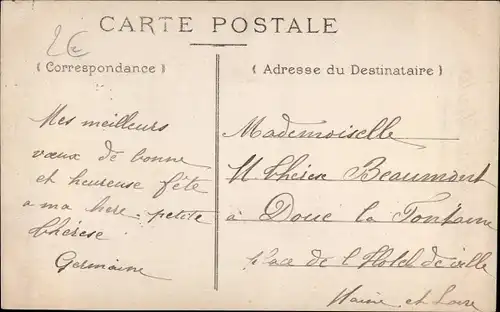 CARTE POSTALE
2€
( Correspondance )
( Adresse du Destinataire )
Mes meilleurs
vœux de bonne
et heureuse fête
a ma chere petite
thérèse
Germaine
Mademoiselle
thérèse Beaumont
à Doué la Fontaine
place de l'Hotel de ville
Maine et Loire